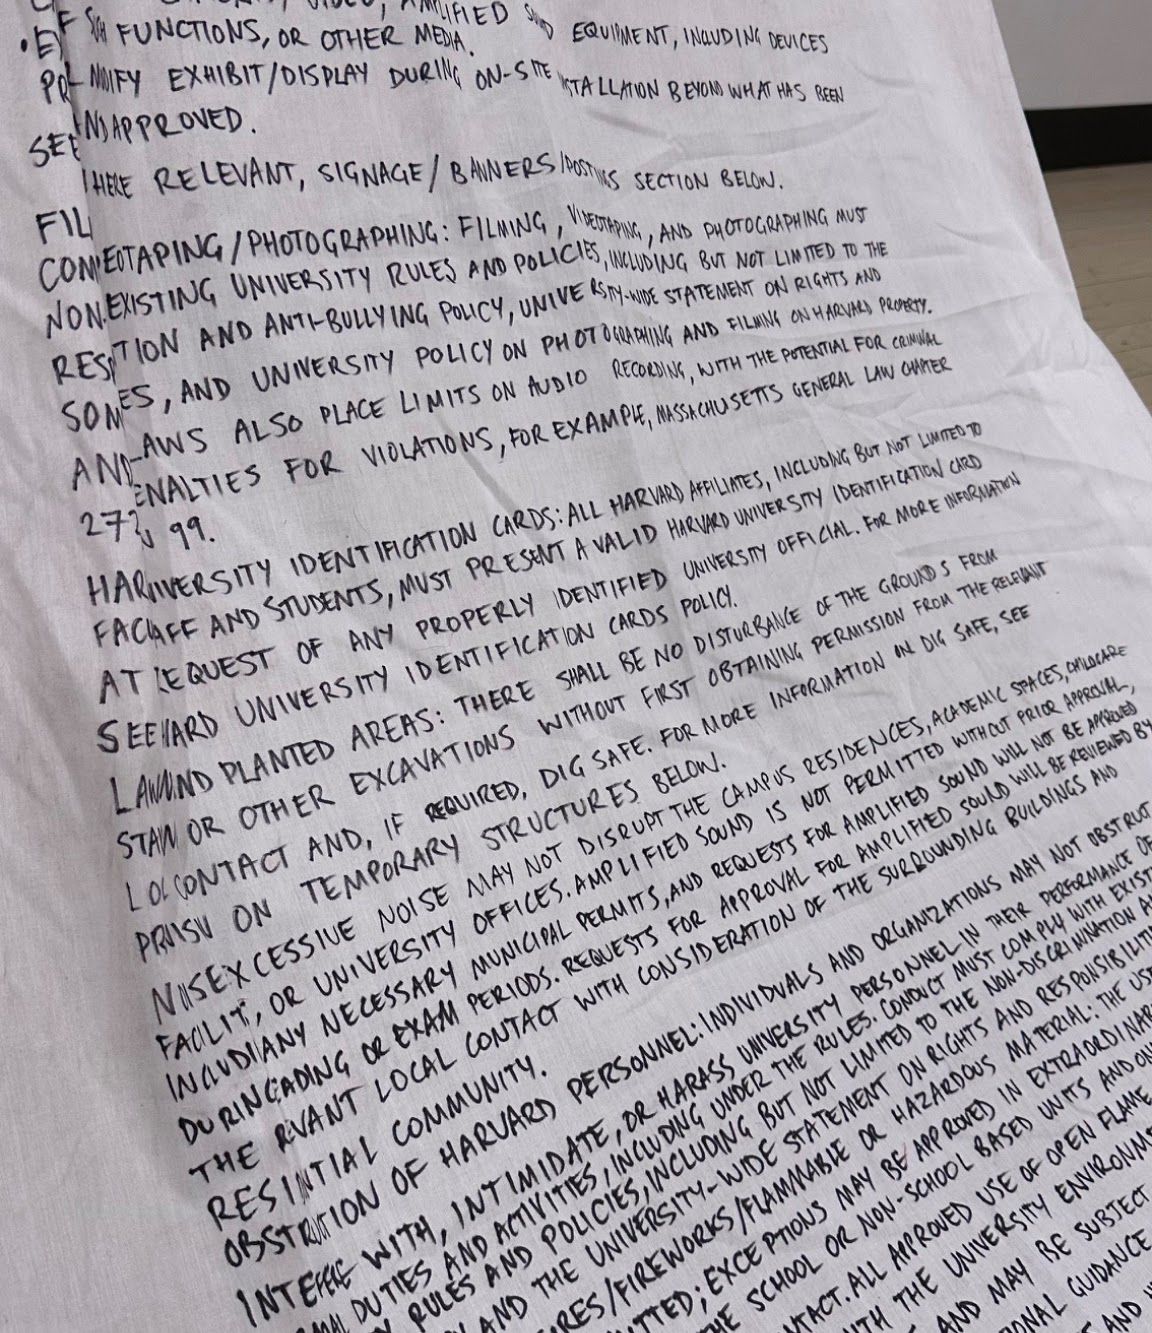 AMPLIFIED SOUND EQUIPMENT, INCLUDING DEVICES
FUNCTIONS, OR OTHER MEDIA.
EXHIBIT/DISPLAY DURING ON-SITE INSTALLATION BEYOND WHAT HAS BEEN
APPROVED.
SEE
RELEVANT, SIGNAGE/BANNERS/POSTINGS SECTION BELOW.
FIL
/PHOTOGRAPHING: FILMING, VIDEOTAPING, AND PHOTOGRAPHING MUST
EXISTING UNIVERSITY RULES AND POLICIES, INCLUDING BUT NOT LIMITED TO THE
AND ANTI-BULLYING POLICY, UNIVERSITY-WIDE STATEMENT ON RIGHTS AND
RES
, AND UNIVERSITY POLICY ON PHOTOGRAPHING AND FILMING ON HARVARD PROPERTY.
LAWS ALSO PLACE LIMITS ON AUDIO RECORDING, WITH THE POTENTIAL FOR CRIMINAL
PENALTIES FOR VIOLATIONS, FOR EXAMPLE, MASSACHUSETTS GENERAL LAW CHAPTER
99.
IDENTIFICATION CARDS: ALL HARVARD AFFILIATES, INCLUDING BUT NOT LIMITED TO
AND STUDENTS, MUST PRESENT A VALID HARVARD UNIVERSITY IDENTIFICATION CARD
AT REQUEST OF ANY PROPERLY IDENTIFIED UNIVERSITY OFFICIAL. FOR MORE INFORMATION
SEE UNIVERSITY IDENTIFICATION CARDS POLICY.
PLANTED AREAS: THERE SHALL BE NO DISTURBANCE OF THE GROUNDS FROM
OR OTHER EXCAVATIONS WITHOUT FIRST OBTAINING PERMISSION FROM THE RELEVANT
CONTACT AND, IF REQUIRED, DIG SAFE. FOR MORE INFORMATION ON DIG SAFE, SEE
ON TEMPORARY STRUCTURES BELOW.
EXCESSIVE NOISE MAY NOT DISRUPT THE CAMPUS RESIDENCES, ACADEMIC SPACES, CHILDCARE
OR UNIVERSITY OFFICES. AMPLIFIED SOUND IS NOT PERMITTED WITHOUT PRIOR APPROVAL,
ANY NECESSARY MUNICIPAL PERMITS, AND REQUESTS FOR AMPLIFIED SOUND WILL NOT BE APPROVED
DURING OR EXAM PERIODS. REQUESTS FOR APPROVAL FOR AMPLIFIED SOUND WILL BE REVIEWED BY
THE LOCAL CONTACT WITH CONSIDERATION OF THE SURROUNDING BUILDINGS AND
COMMUNITY.
OBSTRUCTION OF HARVARD PERSONNEL: INDIVIDUALS AND ORGANIZATIONS MAY NOT OBSTRUCT
INTERFERE WITH, INTIMIDATE, OR HARASS UNIVERSITY PERSONNEL IN THEIR PERFORMANCE OF
DUTIES AND ACTIVITIES, INCLUDING UNDER THE RULES. CONDUCT MUST COMPLY WITH
RULES AND POLICIES, INCLUDING BUT NOT LIMITED TO THE NON-DISCRIMINATION
AND THE UNIVERSITY-WIDE STATEMENT ON RIGHTS AND
/FIREWORKS/FLAMMABLE OR HAZARDOUS MATERIAL: THE USE
; EXCEPTIONS MAY BE APPROVED IN
THE SCHOOL OR NON-SCHOOL BASED UNITS AND
ALL APPROVED USE OF OPEN FLAME
THE UNIVERSITY
AND MAY BE SUBJECT
GUIDANCE
AND